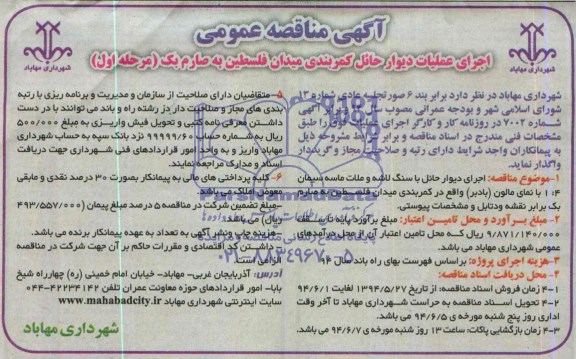 آگهی مناقصه عمومی
اجرای عملیات دیوار حائل کمربندی میدان فلسطین به صارم بک (مرحله اول)
شهرداری مهاباد
شهرداری مهاباد
شهرداری مهاباد در نظر دارد برابر بند ۶ صورتجلسه عادی شماره ۱۳
شورای اسلامی شهر و بودجه عمرانی مصوب سال آگهی
شماره ۷۰۰۲ در روزنامه کار و کارگر اجرای عملیات طبق
مشخصات فنی مندرج در اسناد مناقصه و برابر شرایط مشروحه ذیل
به پیمانکاران واجد شرایط دارای رتبه و صلاحیت مجاز و گریددار
واگذار نماید.
۱-موضوع مناقصه: اجرای دیوار حائل با سنگ لاشه و ملات ماسه سیمان
۱:۴ با نمای مالون (بادبر) واقع در کمربندی میدان فلسطین به صارم
بک برابر نقشه ودتایل و مشخصات پیوستی.
۲- مبلغ برآورد و محل تامین اعتبار: مبلغ برآورد پایه تا تاریخ
۹/۸۷۱/۱۴۰/۰۰۰ ریال که محل تامین اعتبار آن از محل درآمدهای
عمومی شهرداری مهاباد می باشد.
۳-هزینه اجرای پروژه: براساس فهرست بهای راه باند سال ۹۴
۴- محل دریافت اسناد مناقصه:
۴-۱ زمان فروش اسناد مناقصه: از تاریخ ۱۳۹۴/۵/۲۷ لغایت ۹۴/۶/۱
۴-۲ تحویل اسناد مناقصه به حراست شهرداری مهاباد تا آخر وقت
اداری روز پنج شنبه مورخه ی ۹۴/۶/۵ می باشد.
۴-۳ زمان بازگشایی پاکات: ساعت ۱۳ روز شنبه مورخه ی ۹۴/۶/۷ می باشد.
۵- متقاضیان دارای صلاحیت از سازمان و مدیریت و برنامه ریزی با رتبه
بندی های مجاز و صلاحیت دار در رشته راه و باند می توانند با در دست
داشتن معرفی نامه کتبی و تحویل فیش واریزی به مبلغ ۵۰۰/۰۰۰
ریال به شماره حساب ۹۹۹۹۹/۶۰ نزد بانک سپه به حساب شهرداری
مهاباد واریز و به واحد امور قراردادهای فنی شهرداری جهت دریافت
اسناد و مدارک مراجعه نمایند.
۶- کلیه پرداختی های مالی به پیمانکار بصورت ۳۰ درصد نقدی و مابقی
معوض املاک می باشد.
-مبلغ تضمین شرکت در مناقصه ۵ درصد مبلغ پیمان (۴۹۳/۵۵۷/۰۰۰
ریال) می باشد.
-هزینه چاپ ونشر آگهی به تعداد به عهده پیمانکار برنده می باشد.
- داشتن کد اقتصادی و مقررات حاکم بر آن جهت شرکت در مناقصه
الزامی است.
آدرس: آذربایجان غربی- مهاباد- خیابان امام خمینی (ره) چهارراه شیخ
بابا- امور قراردادهای حوزه معاونت عمران تلفن ۴۲۲۳۳۱۴۲-۰۴۴
سایت اینترنتی شهرداری مهاباد www.mahabadcity.ir
شهرداری مهاباد
ParsNamadData
پایگاه اطلاع رسانی مناقصه و مزایده
۰۲۱-۸۸۳۴۹۶۷۰-۵